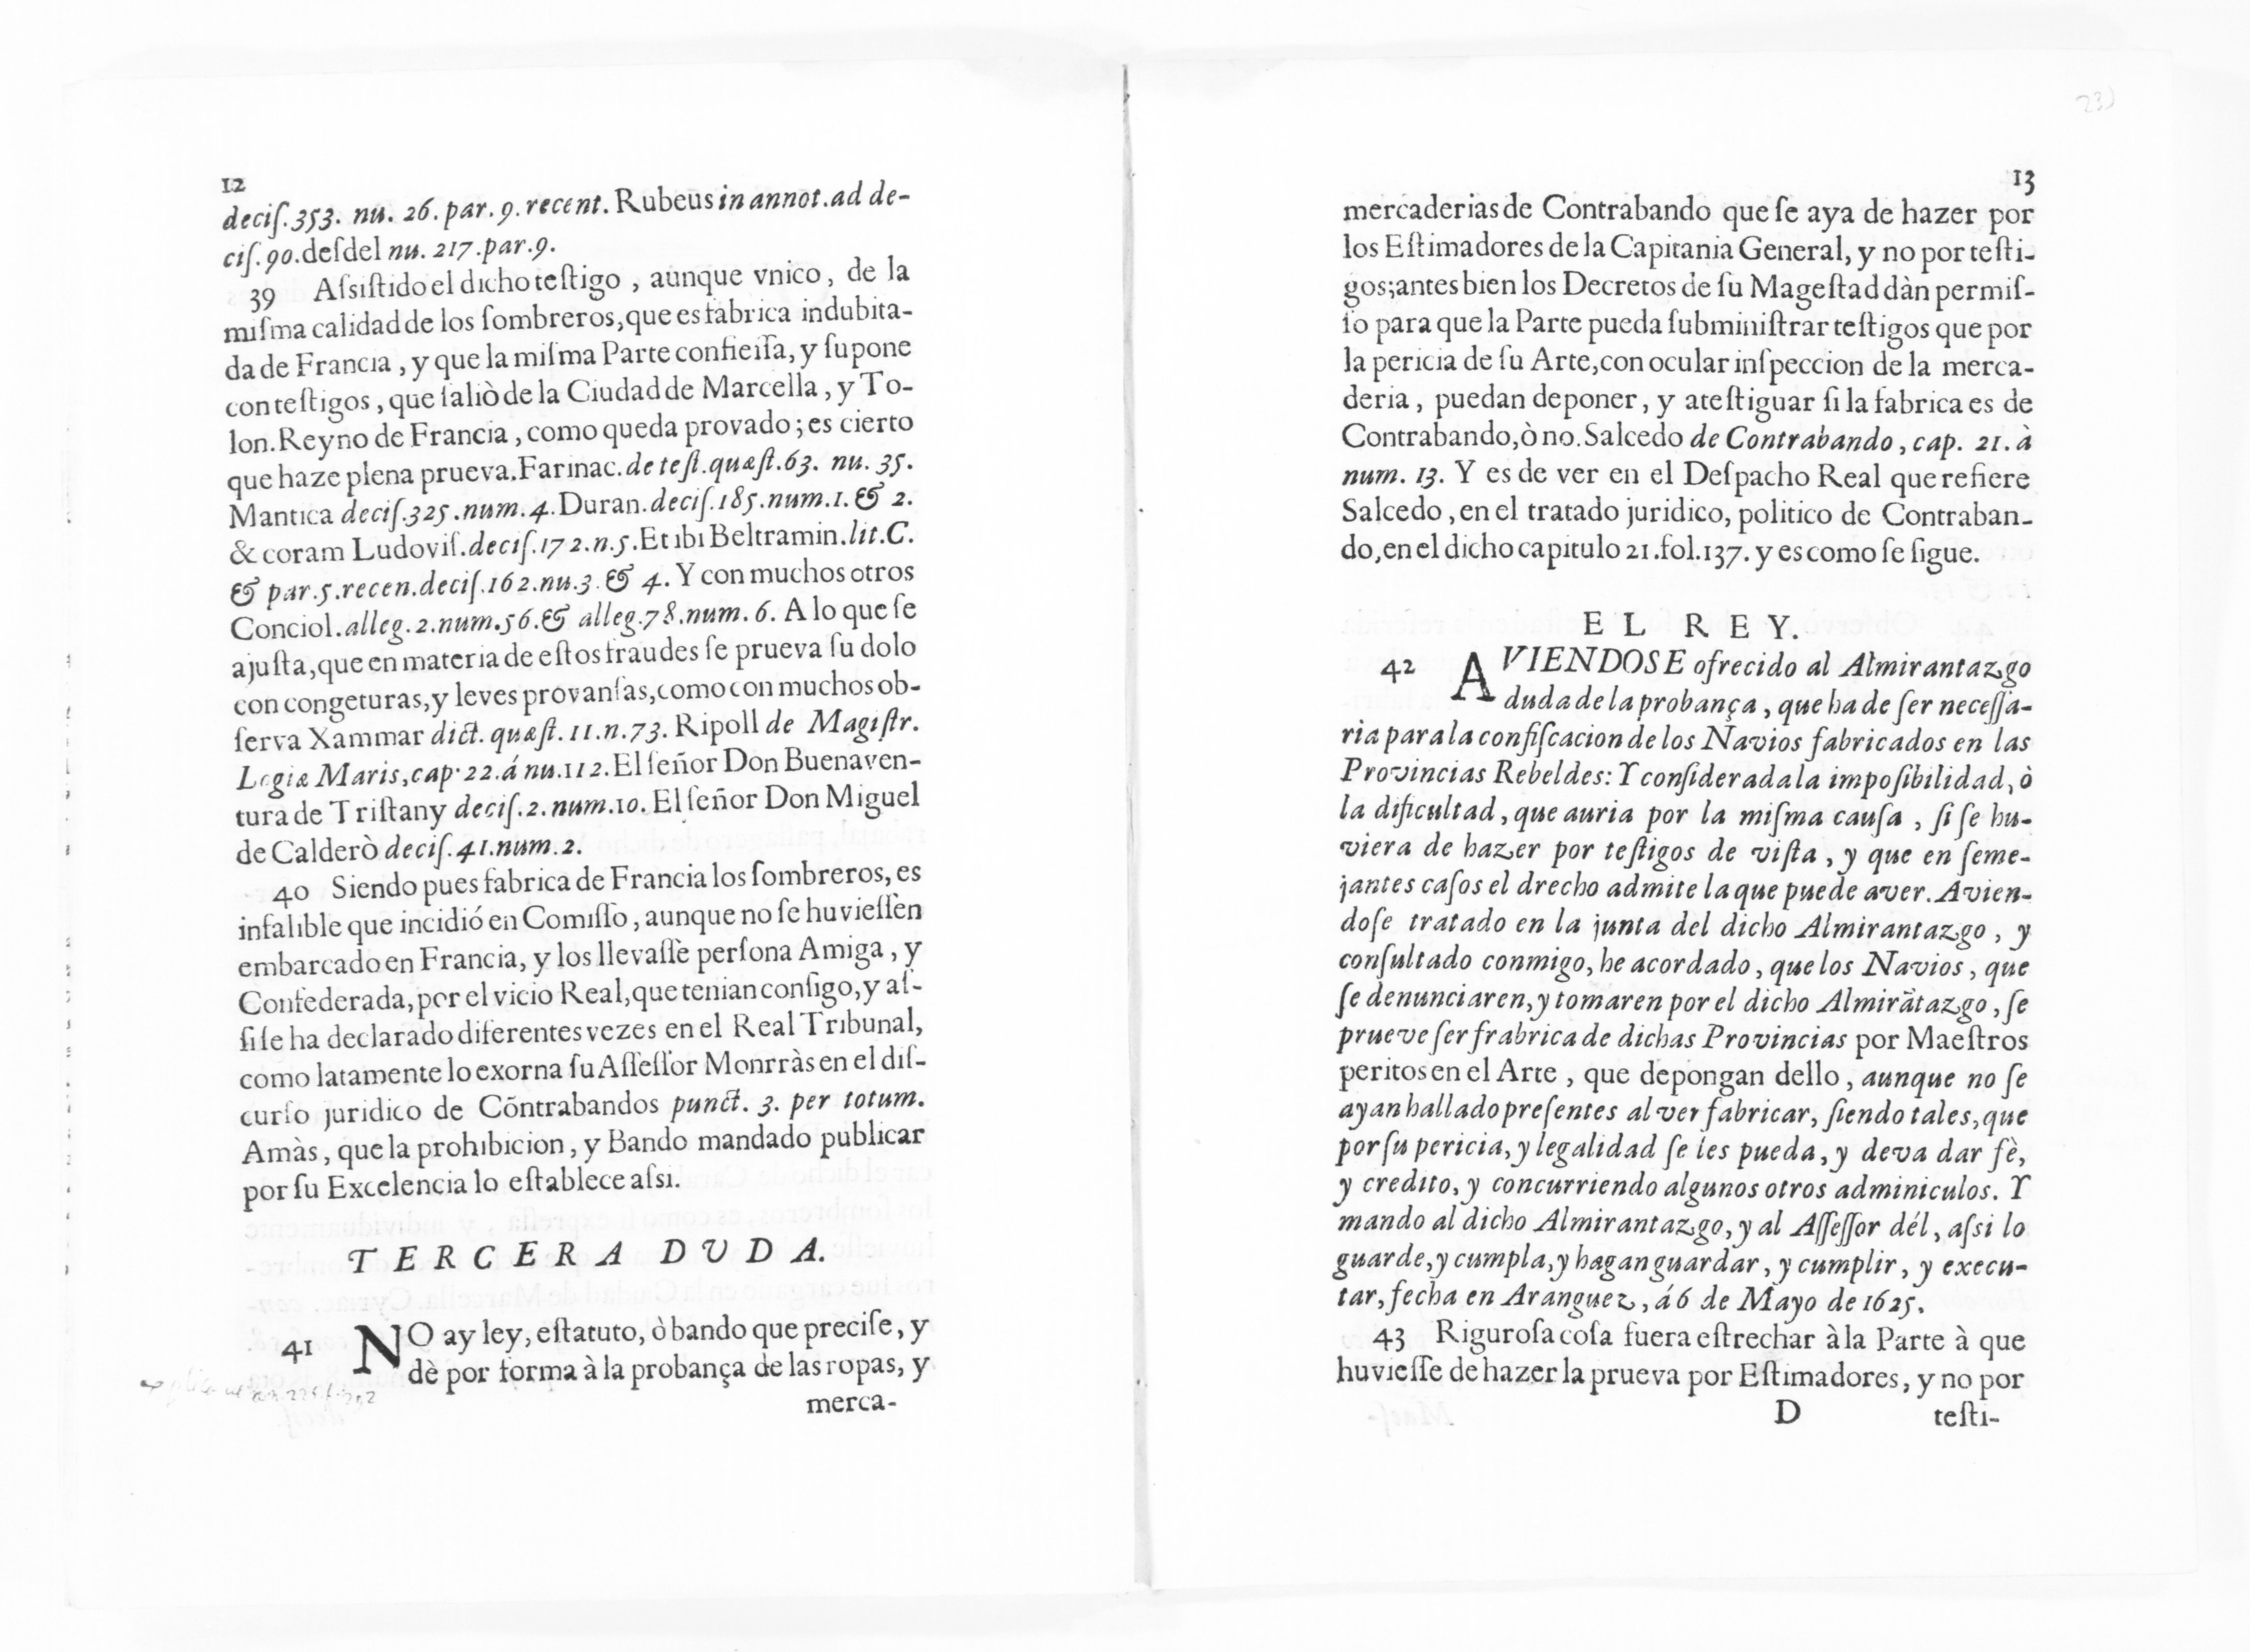 12
deciſ.353. nu. 26. par. 9. recent. Rubeus in annot. ad de-
ciſ. 90. deſdel nu. 217. par. 9.
39 Aſsiſtido el dicho teſtigo, aunque vnico, de la
miſma calidad de los ſombreros, que es fabrica indubita-
da de Francia, y que la miſma Parte confieſſa, y ſupone
con teſtigos, que ſaliò de la Ciudad de Marcella, y To-
lon. Reyno de Francia, como queda provado; es cierto
que haze plena prueva. Farinac. de teſt. quæſt. 63. nu. 35.
Mantica deciſ.325. num. 4. Duran. deciſ.185. num. 1. & 2.
& coram Ludoviſ. deciſ.172. n. 5. Et ibi Beltramin. lit. C.
& par. 5. recen. deciſ.162. nu. 3. & 4. Y con muchos otros
Conciol. alleg. 2. num. 56. & alleg. 78. num. 6. A lo que ſe
ajuſta, que en materia de eſtos fraudes ſe prueva ſu dolo
con congeturas, y leves provanſas, como con muchos ob-
ſerva Xammar dict. quæſt. 11. n. 73. Ripoll de Magiſtr.
Logiæ Maris, cap. 22. á nu. 112. El ſeñor Don Buenaven-
tura de Triſtany deciſ. 2. num. 10. El ſeñor Don Miguel
de Calderò deciſ. 41. num. 2.
40 Siendo pues fabrica de Francia los ſombreros, es
infalible que incidió en Comiſſo, aunque no ſe huvieſſen
embarcado en Francia, y los llevaſſe perſona Amiga, y
Confederada, por el vicio Real, que tenian conſigo, y aſ-
ſi ſe ha declarado diferentes vezes en el Real Tribunal,
como latamente lo exorna ſu Aſſeſſor Monrràs en el diſ-
curſo juridico de Cõntrabandos punct. 3. per totum.
Amàs, que la prohibicion, y Bando mandado publicar
por ſu Excelencia lo eſtablece aſsi.
TERCERA DUDA.
41 NO ay ley, eſtatuto, ò bando que preciſe, y
dè por forma à la probança de las ropas, y
merca-
23
13
mercaderias de Contrabando que ſe aya de hazer por
los Eſtimadores de la Capitania General, y no por teſti-
gos; antes bien los Decretos de ſu Mageſtad dàn permiſ-
ſo para que la Parte pueda ſubminiſtrar teſtigos que por
la pericia de ſu Arte, con ocular inſpeccion de la merca-
deria, puedan deponer, y ateſtiguar ſi la fabrica es de
Contrabando, ò no. Salcedo de Contrabando, cap. 21. à
num. 13. Y es de ver en el Deſpacho Real que refiere
Salcedo, en el tratado juridico, politico de Contraban-
do, en el dicho capitulo 21. fol. 137. y es como ſe ſigue.
EL REY.
42 AVIENDOSE ofrecido al Almirantazgo
duda de la probança, que ha de ſer neceſſa-
ria para la confiſcacion de los Navios fabricados en las
Provincias Rebeldes: Y conſiderada la impoſibilidad, ò
la dificultad, que auria por la miſma cauſa, ſi ſe hu-
viera de hazer por teſtigos de viſta, y que en ſeme-
jantes caſos el drecho admite la que puede aver. Avien-
doſe tratado en la junta del dicho Almirantazgo, y
conſultado conmigo, he acordado, que los Navios, que
ſe denunciaren, y tomaren por el dicho Almirãtazgo, ſe
prueve ſer frabrica de dichas Provincias por Maeſtros
peritos en el Arte, que depongan dello, aunque no ſe
ayan hallado preſentes al ver fabricar, ſiendo tales, que
por ſu pericia, y legalidad ſe les pueda, y deva dar fè,
y credito, y concurriendo algunos otros adminiculos. Y
mando al dicho Almirantazgo, y al Aſſeſſor dél, aſsi lo
guarde, y cumpla, y hagan guardar, y cumplir, y execu-
tar, fecha en Aranguez, á 6 de Mayo de 1625.
43 Riguroſa coſa fuera eſtrechar à la Parte à que
huvieſſe de hazer la prueva por Eſtimadores, y no por
D teſti-